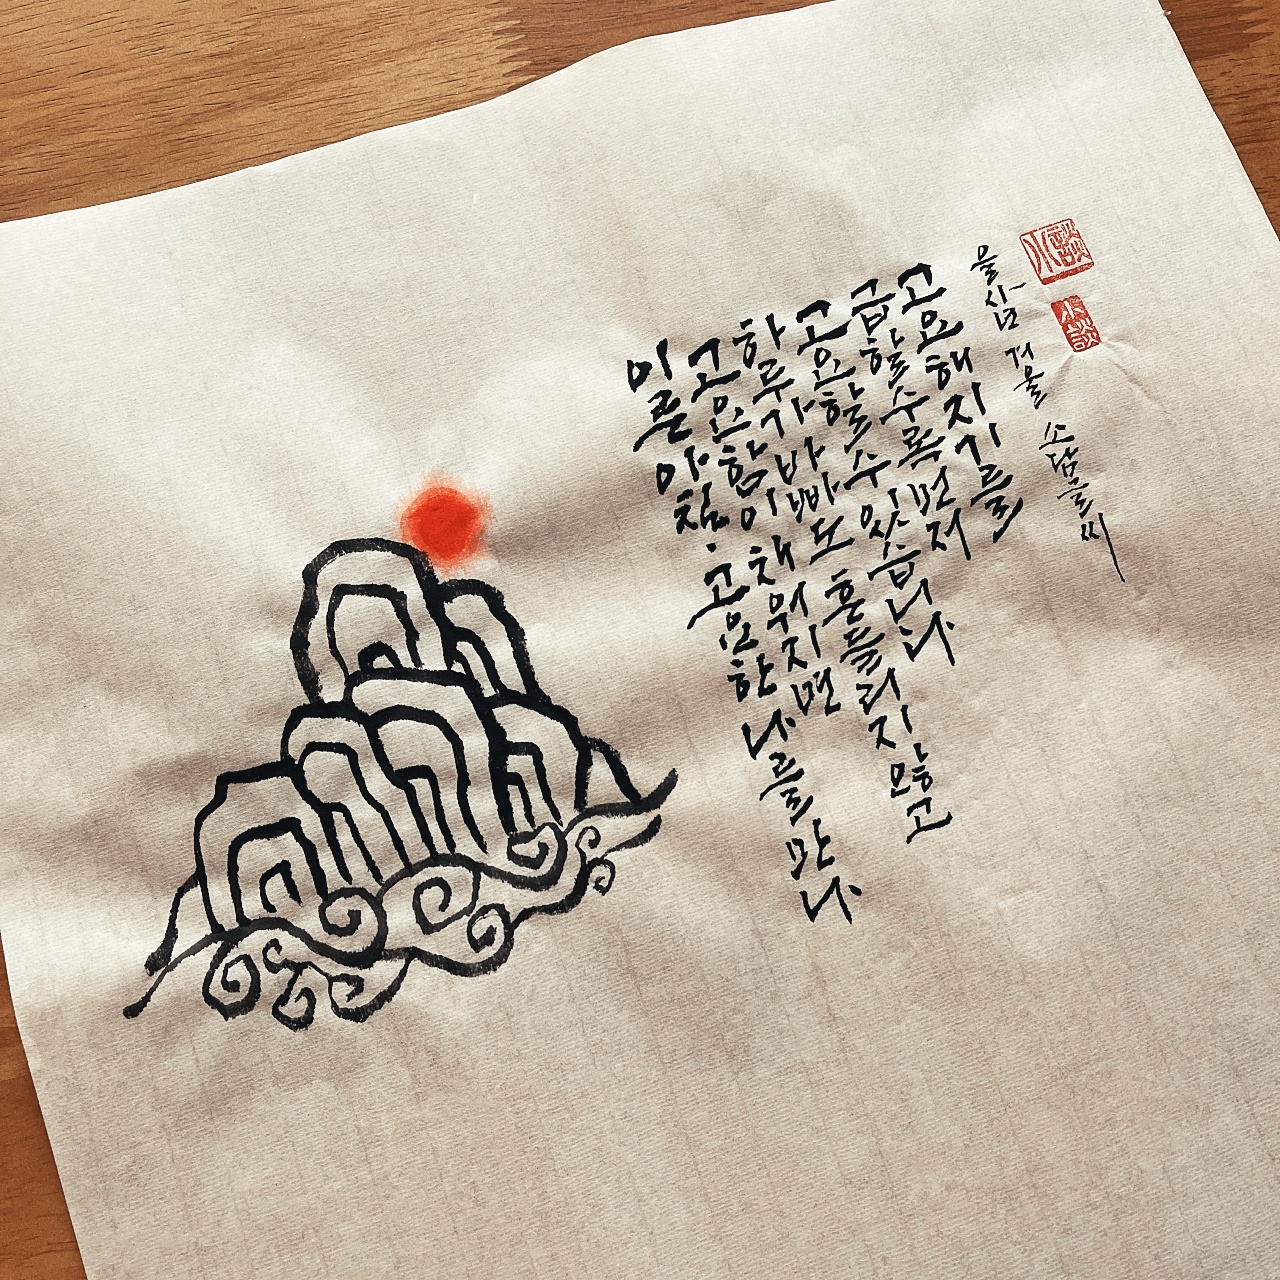 이른 아침 고요한 나를 만나
고요함이 채워지면
하루가 바빠도 흔들리지 않고
고요할 수 있습니다
급할수록 먼저
고요해지기를
을사년 겨울 소담글씨
小談
小談